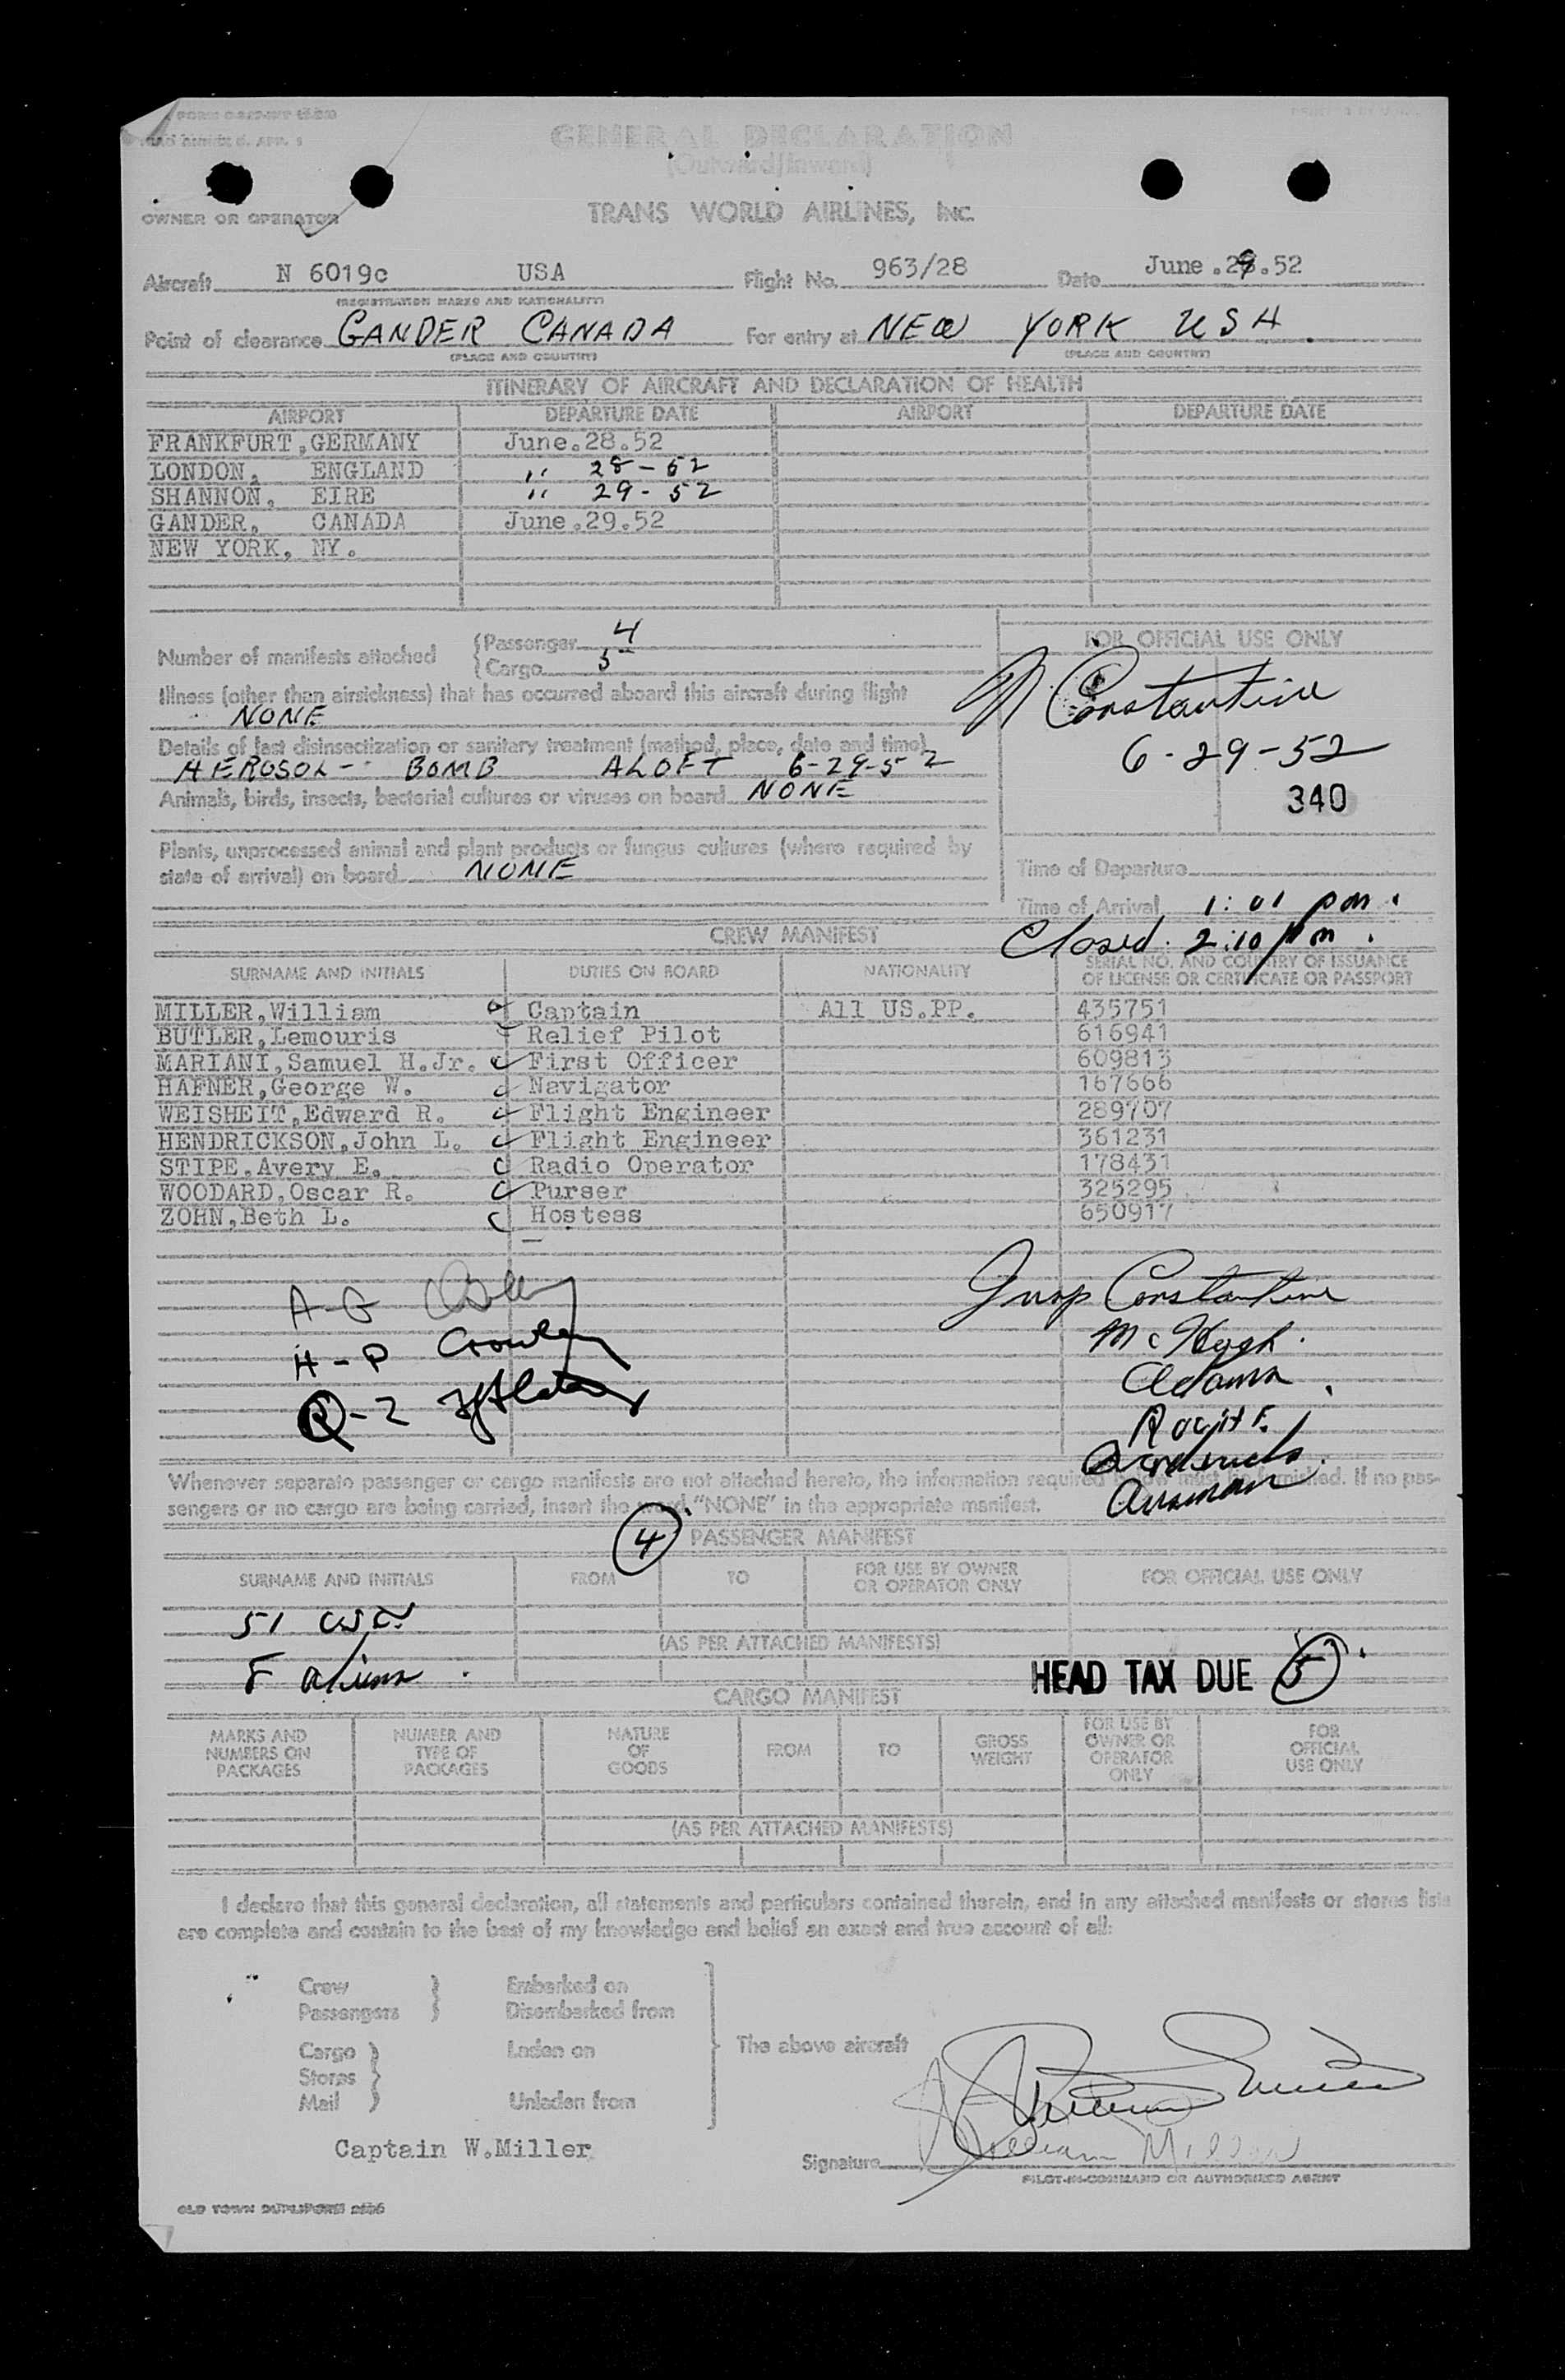 GENERAL DECLARATION
(Outward/Inward)
OWNER OR OPERATOR
TRANS WORLD AIRLINES, INC.
Aircraft N 6019c USA Flight No. 963/28 Date June.29.52
(REGISTRATION MARKS AND NATIONALITY)
Point of clearance GANDER CANADA For entry at NEW YORK USA.
(PLACE AND COUNTRY) (PLACE AND COUNTRY)
ITINERARY OF AIRCRAFT AND DECLARATION OF HEALTH
AIRPORT DEPARTURE DATE AIRPORT DEPARTURE DATE
FRANKFURT,GERMANY June.28.52
LONDON, ENGLAND " 28-52
SHANNON, EIRE " 29-52
GANDER, CANADA June.29.52
NEW YORK, NY.
Number of manifests attached
Passenger 4
Cargo 5
FOR OFFICIAL USE ONLY
Constantine
6-29-52
340
Illness (other than airsickness) that has occurred aboard this aircraft during flight
NONE
Details of last disinsectization or sanitary treatment (method, place, date and time)
AEROSOL-- BOMB ALOFT 6-29-52
Animals, birds, insects, bacterial cultures or viruses on board NONE
Plants, unprocessed animal and plant products or fungus cultures (where required by
state of arrival) on board NONE
Time of Departure
Time of Arrival 1:01 pm.
Closed. 2:10 pm.
CREW MANIFEST
SURNAME AND INITIALS DUTIES ON BOARD NATIONALITY SERIAL NO. AND COUNTRY OF ISSUANCE
OF LICENSE OR CERTIFICATE OR PASSPORT
MILLER,William Captain All US.PP. 435751
BUTLER,Lemouris Relief Pilot 616941
MARIANI,Samuel H.Jr. First Officer 609813
HAFNER,George W. Navigator 167666
WEISHEIT,Edward R. Flight Engineer 289707
HENDRICKSON,John L. Flight Engineer 361231
STIPE,Avery E. Radio Operator 178431
WOODARD,Oscar R. Purser 325295
ZOHN,Beth L. Hostess 650917
A-G
H-P Crowley
Q-Z
Insp Constantine
McHugh.
Adams.
Whenever separate passenger or cargo manifests are not attached hereto, the information required must be furnished. If no pas-
sengers or no cargo are being carried, insert the word "NONE" in the appropriate manifest.
4 PASSENGER MANIFEST
SURNAME AND INITIALS FROM TO FOR USE BY OWNER
OR OPERATOR ONLY FOR OFFICIAL USE ONLY
51 USC
(AS PER ATTACHED MANIFESTS)
aliens
HEAD TAX DUE 5
CARGO MANIFEST
MARKS AND
NUMBERS ON
PACKAGES
NUMBER AND
TYPE OF
PACKAGES
NATURE
OF
GOODS
FROM
TO
GROSS
WEIGHT
FOR USE BY
OWNER OR
OPERATOR
ONLY
FOR
OFFICIAL
USE ONLY
(AS PER ATTACHED MANIFESTS)
I declare that this general declaration, all statements and particulars contained therein, and in any attached manifests or stores lists
are complete and contain to the best of my knowledge and belief an exact and true account of all:
Crew
Passengers
Embarked on
Disembarked from
Cargo
Stores
Mail
Laden on
Unladen from
The above aircraft
Captain W.Miller
William Miller
Signature
PILOT-IN-COMMAND OR AUTHORIZED AGENT